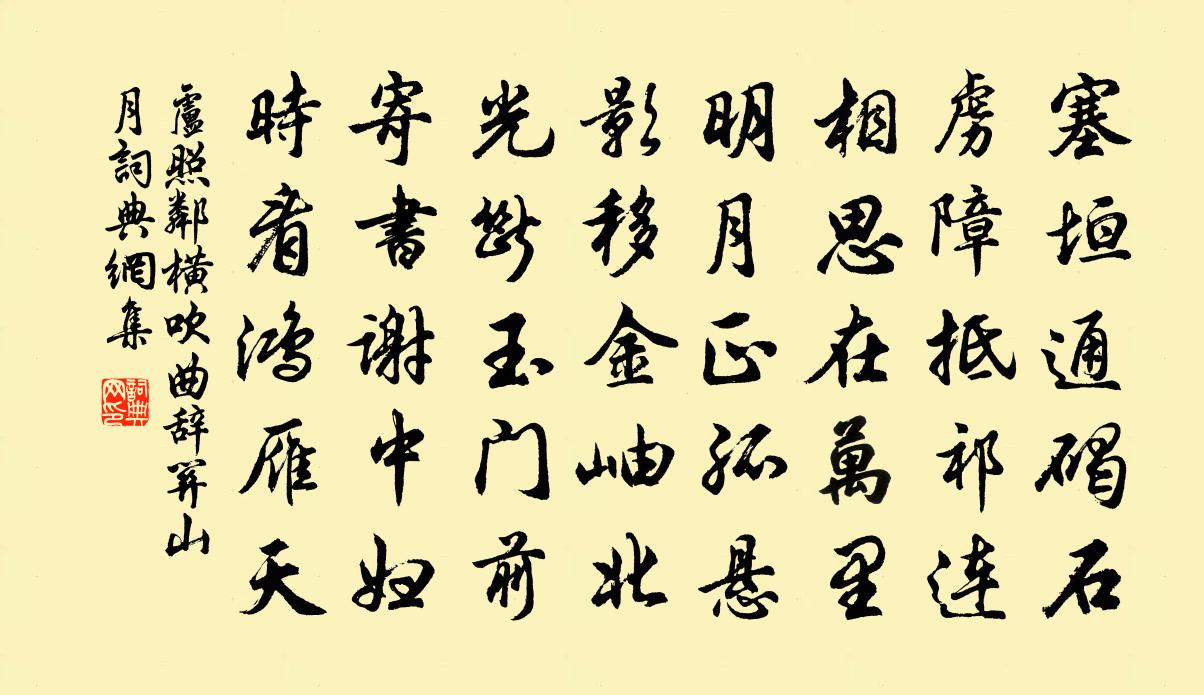 塞垣通碣石
虏障抵祁連
相思在萬里
明月正孤悬
影移金岫北
光斷玉门前
寄書謝中妇
時看鴻雁天
盧照鄰橫吹曲辞關山
月詞典網集
詞典网印